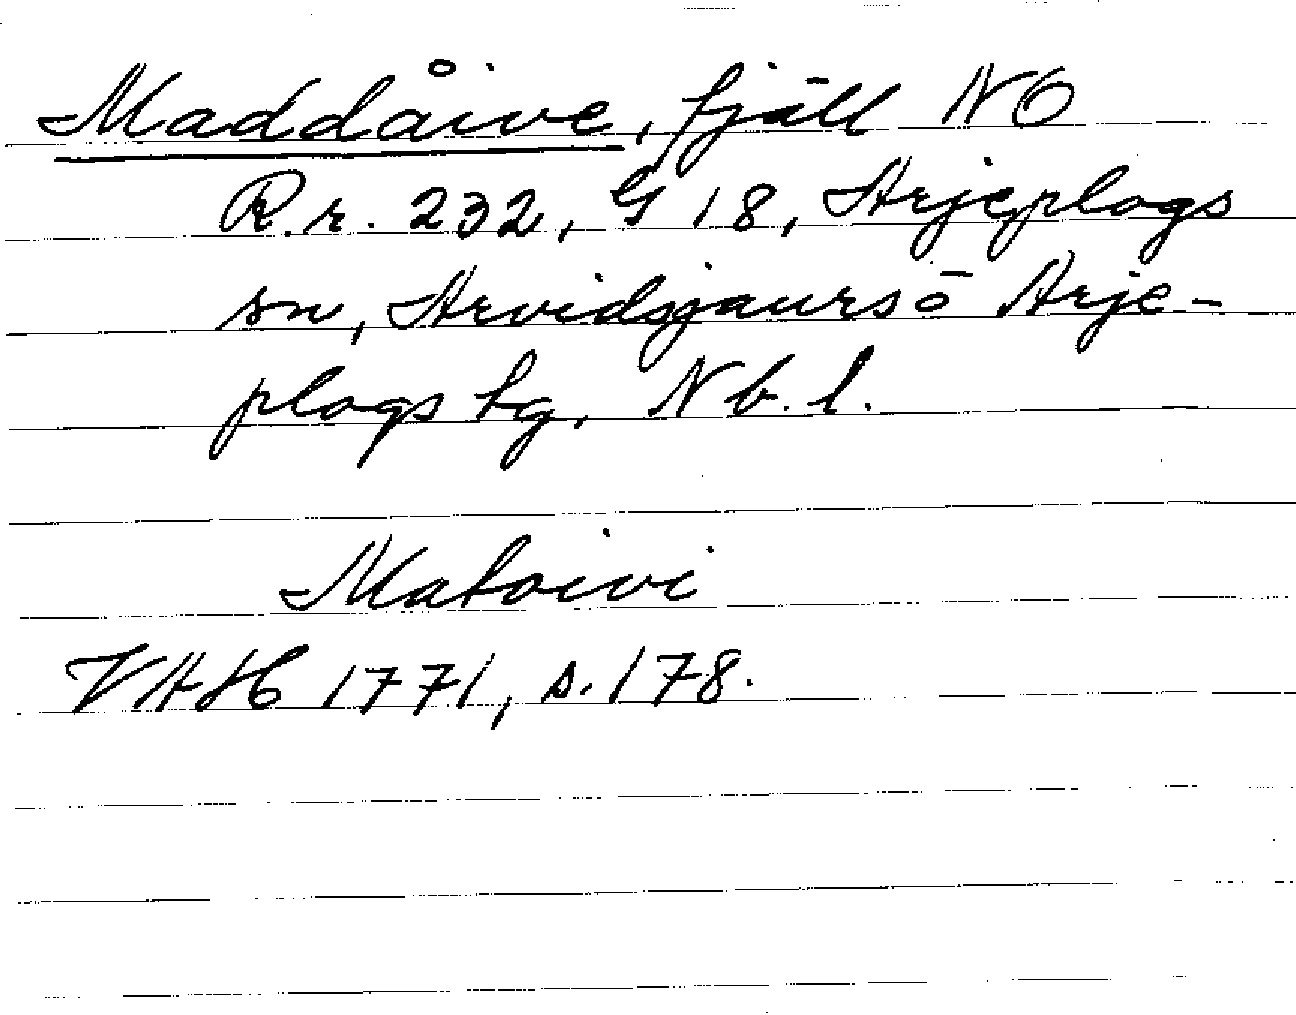 Maddåive, fjäll NO
R.r. 232, G 18, Arjeplogs
sn, Arvidsjaurs o Arje-
plogs tg, Nb.l.
Matoivi
VAH 1771, s. 178.